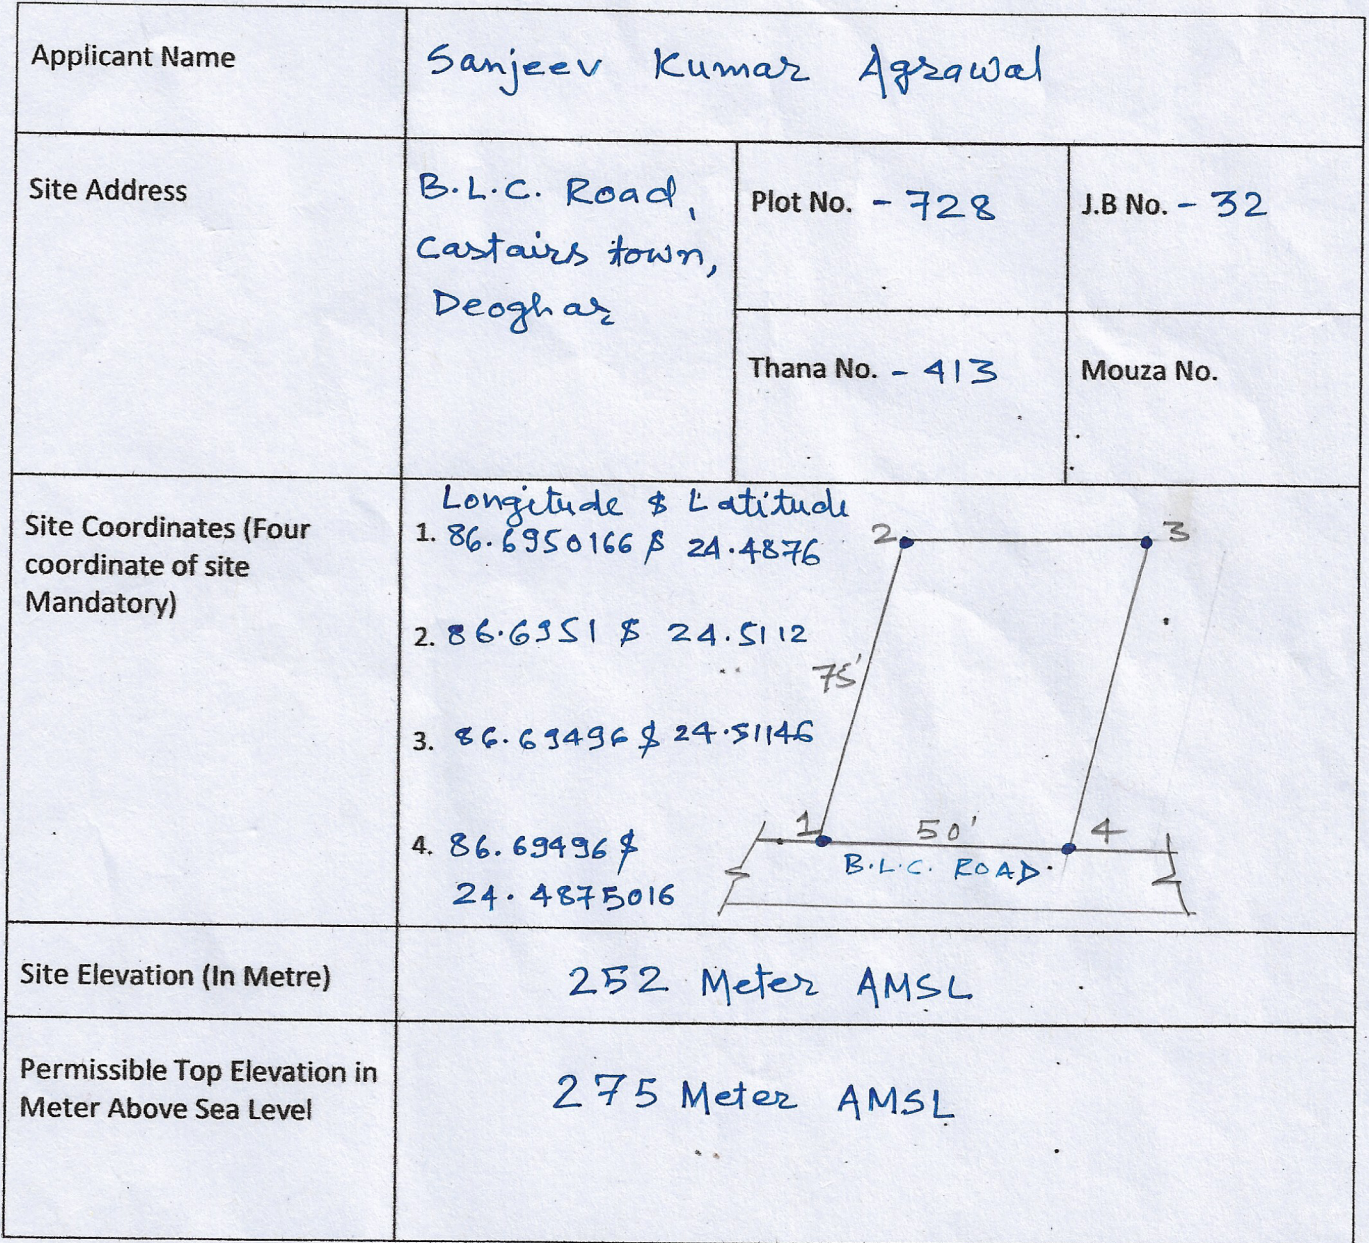 Applicant Name
Sanjeev Kumar Agrawal
Site Address
B.L.C. Road,
Castairs town,
Deoghar
Plot No. - 728
J.B No. - 32
Thana No. - 413
Mouza No.
Site Coordinates (Four
coordinate of site
Mandatory)
Longitude & Latitude
1. 86.6950166 & 24.4876
2. 86.6951 & 24.5112
3. 86.69496 & 24.51146
4. 86.69496 &
24.4875016
2
3
75'
1
50'
4
B.L.C. ROAD.
Site Elevation (In Metre)
252 Meter AMSL
Permissible Top Elevation in
Meter Above Sea Level
275 Meter AMSL